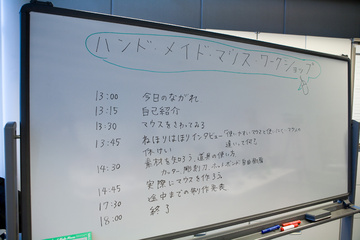 ハンド・メイド・マウス・ワークショップ
13:00 今日のながれ
13:15 自己紹介
13:30 マウスをさわってみる
13:45 ねほりはほりインタビュー
14:30 素材を知ろう、道具の使い方
カッター、彫刻刀
14:45 実際にマウスを作る
17:30 途中までの制作発表
18:00 終了